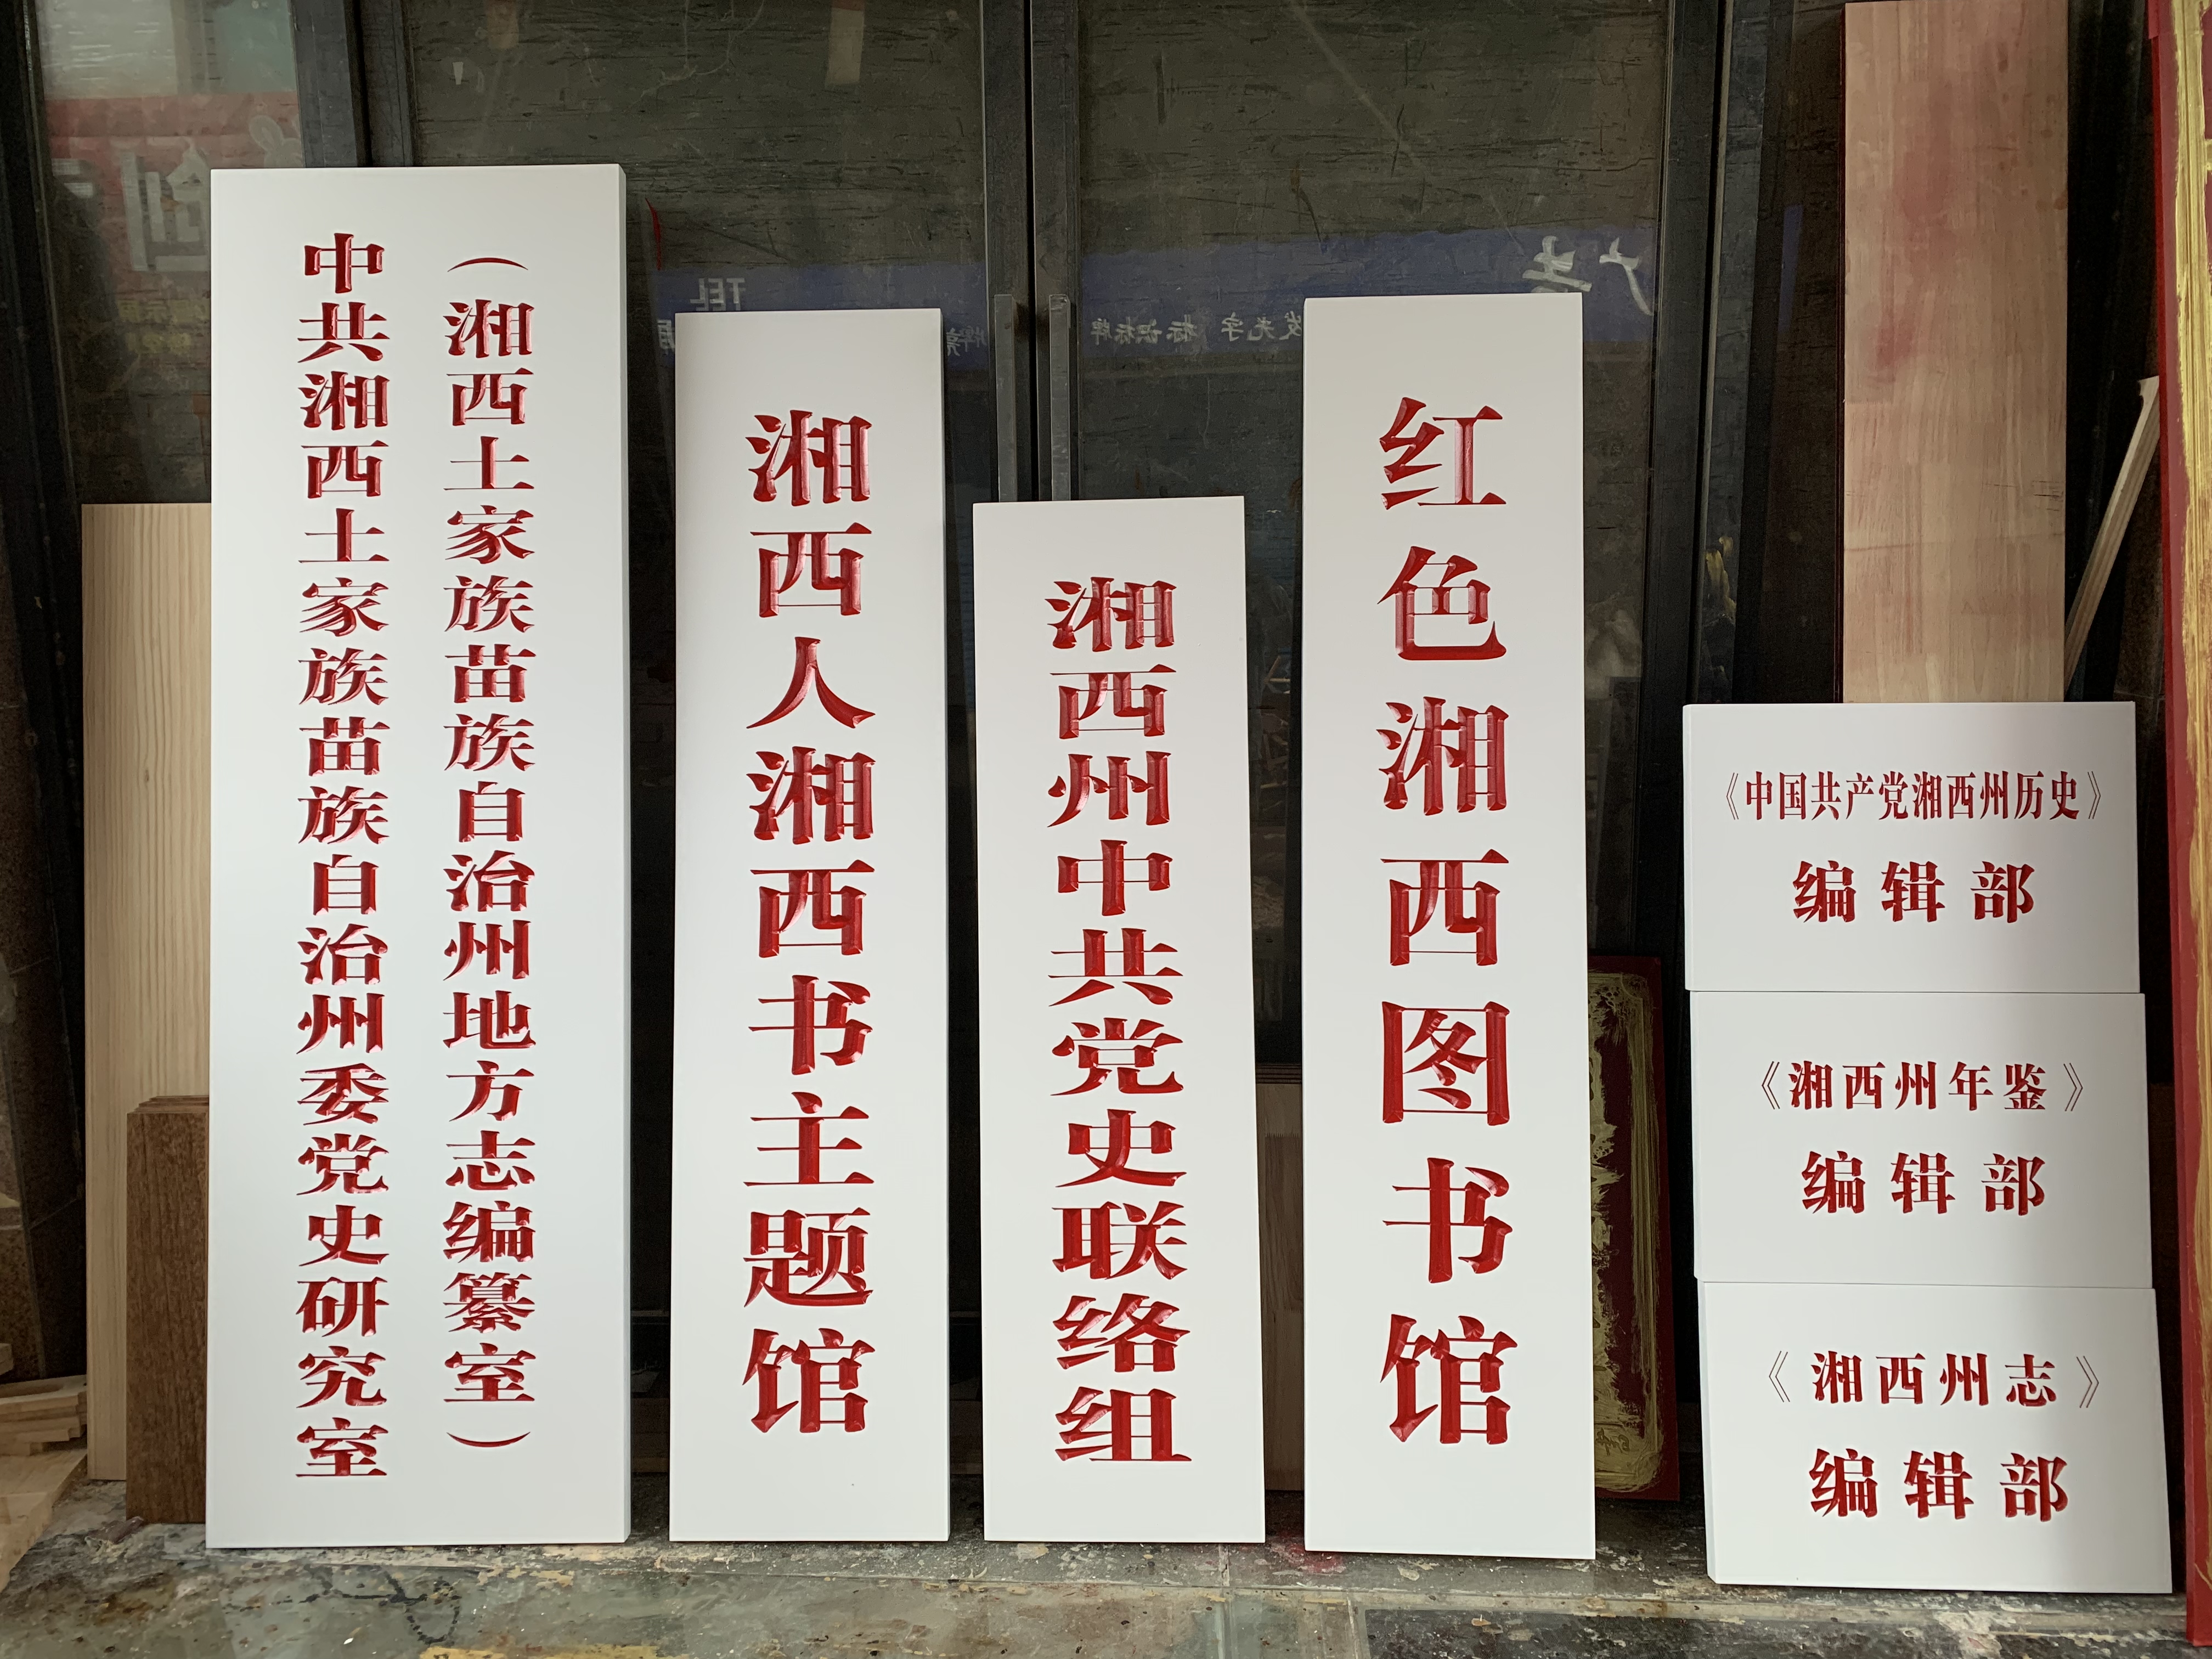 中共湘西土家族苗族自治州委党史研究室
（湘西土家族苗族自治州地方志编纂室）
湘西人湘西书主题馆
湘西州中共党史联络组
红色湘西图书馆
《中国共产党湘西州历史》
编辑部
《湘西州年鉴》
编辑部
《湘西州志》
编辑部
TEL
发光字 标识标牌